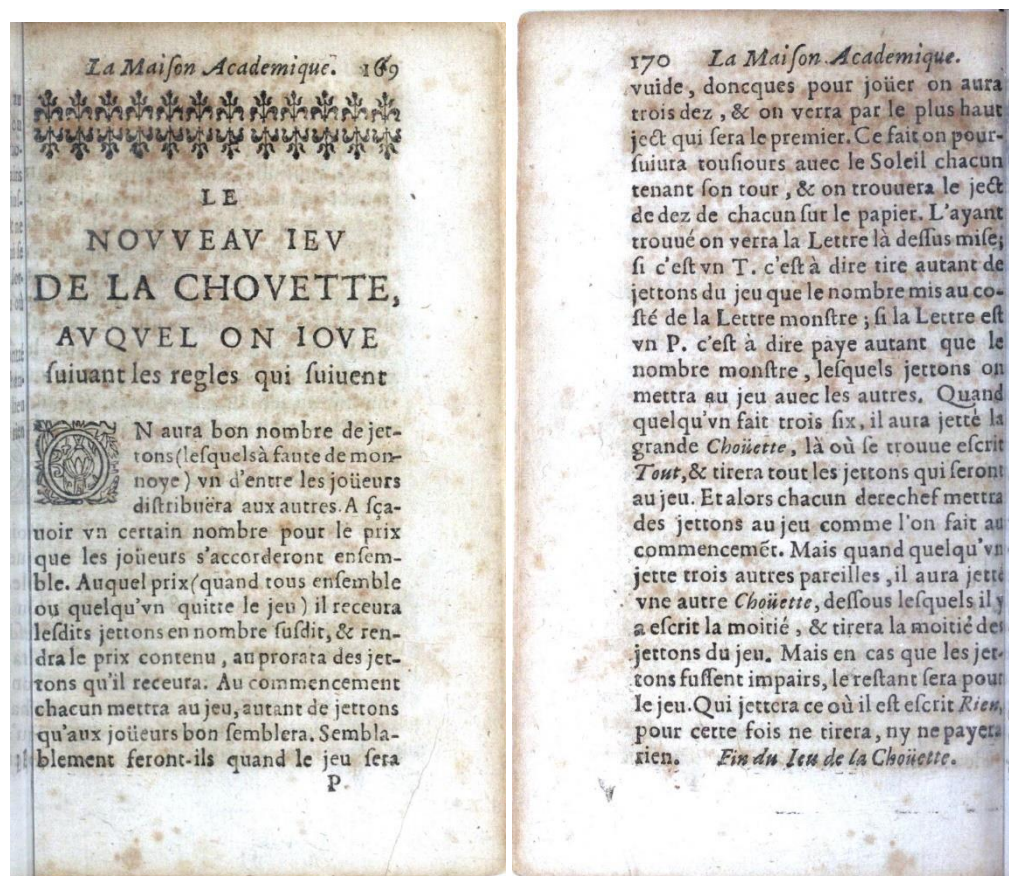 La Maiſon Academique. 169
LE
NOVVEAV IEV
DE LA CHOVETTE,
AVQVEL ON IOVE
ſuiuant les regles qui ſuiuent
ON aura bon nombre de jet-
tons (leſquels à faute de mon-
noye) vn d'entre les joüeurs
diſtribuëra aux autres. A ſça-
uoir vn certain nombre pour le prix
que les joüeurs s'accorderont enſem-
ble. Auquel prix (quand tous enſemble
ou quelqu'vn quitte le jeu) il receura
leſdits jettons en nombre ſuſdit, & ren-
dra le prix contenu, au prorata des jet-
tons qu'il receura. Au commencement
chacun mettra au jeu, autant de jettons
qu'aux joüeurs bon ſemblera. Sembla-
blement feront-ils quand le jeu ſera
P
170 La Maiſon Academique.
vuide, doncques pour joüer on aura
trois dez, & on verra par le plus haut
ject qui ſera le premier. Ce fait on pour-
ſuiura touſiours auec le Soleil chacun
tenant ſon tour, & on trouuera le ject
de dez de chacun ſur le papier. L'ayant
trouué on verra la Lettre là deſſus miſe;
ſi c'eſt vn T. c'eſt à dire tire autant de
jettons du jeu que le nombre mis au co-
ſté de la Lettre monſtre; ſi la Lettre eſt
vn P. c'eſt à dire paye autant que le
nombre monſtre, leſquels jettons on
mettra au jeu auec les autres. Quand
quelqu'vn fait trois ſix, il aura jetté la
grande Choüette, là où ſe trouue eſcrit
Tout, & tirera tout les jettons qui ſeront
au jeu. Et alors chacun derechef mettra
des jettons au jeu comme l'on fait au
commencemẽt. Mais quand quelqu'vn
jette trois autres pareilles, il aura jetté
vne autre Choüette, deſſous leſquels il y
a eſcrit la moitié, & tirera la moitié des
jettons du jeu. Mais en cas que les jet-
tons fuſſent impairs, le reſtant ſera pour
le jeu. Qui jettera ce où il eſt eſcrit Rien,
pour cette fois ne tirera, ny ne payera
rien. Fin du Ieu de la Choüette.